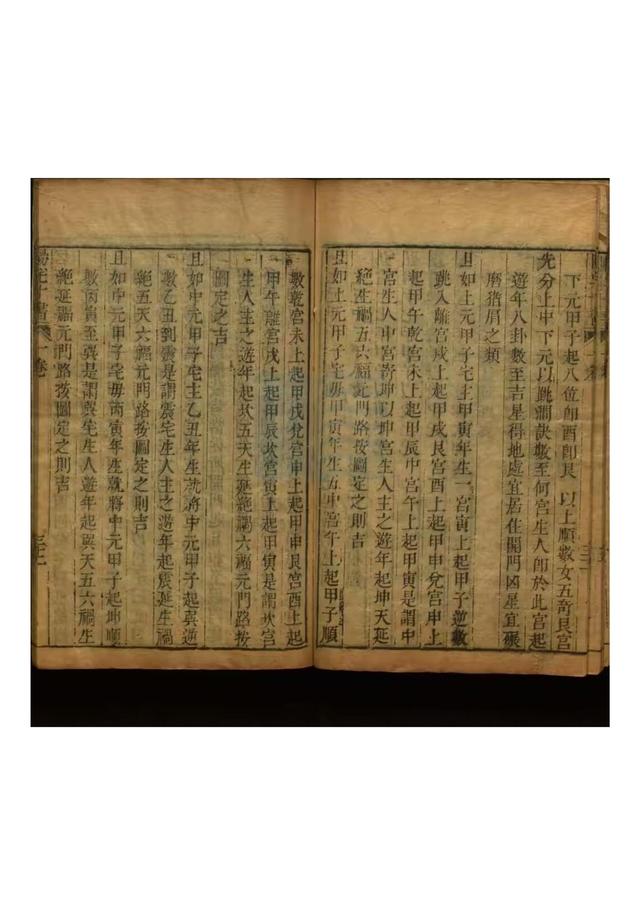 下元甲子起八位卽酉卽艮 以上順數女五竒艮宮
先分上中下元以跳澗訣數至何宮生人卽於此宮起
遊年八卦數至吉星得地處宜居住開門凶星宜碾
磨猪屑之類
且如上元甲子宅主甲寅年生一宮寅上起甲子逆數
跳入離宮戌上起甲戌艮宮酉上起甲申兌宮申上
起甲午乾宮未上起甲辰中宮午上起甲寅是謂中
宮生人中宮寄坤以坤宮生人主之遊年起坤天延
絶生禍五六福元門路按圖定之則吉
且如上元甲子宅母甲寅年生五中宮午上起甲子順
數乾宮未上起甲戌兌宮申上起甲申艮宮酉上起
甲午離宮戌上起甲辰坎宮寅上起甲寅是謂坎宮
生人主之遊年起坎五天生延絶禍六福元門路按
圖定之吉
且如中元甲子宅主乙丑年生就將中元甲子起巽逆
數乙丑到震是謂震宅生人主之遊年起震延生禍
絶五天六福元門路按圖定之則吉
且如中元甲子宅母丙寅年生就將中元甲子起坤順
數丙寅至巽是謂巽宅生人遊年起巽天五六禍生
絶延福元門路按圖定之則吉
陽宅十書 一卷
三十二